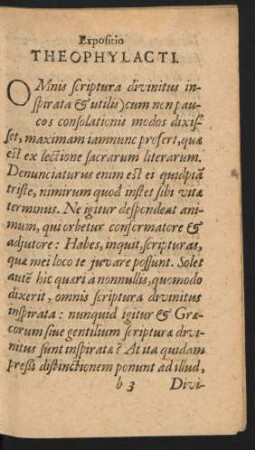 Expositio
THEOPHYLACTI.
OMnis scriptura divinitus in-
spirata & utilis) cum non pau-
cos consolationis modos dixis-
set, maximam iamnunc profert, quæ
est ex lectione sacrarum literarum.
Denunciaturus enim est ei quidpiā
triste, nimirum quod instet sibi vitæ
terminus. Ne igitur despondeat ani-
mum, qui orbetur confermatore &
adjutore: Habes, inquit, scripturas,
quæ mei loco te juvare possunt. Solet
autē hic quæri à nonnullis, quomodo
dixerit, omnis scriptura divinitus
inspirata: nunquid igitur & Græ-
corum siue gentilium scripturæ divi-
nitus sunt inspiratæ? At ita quidam
pressi distinctionem ponunt ad illud,
b 3 Divi-